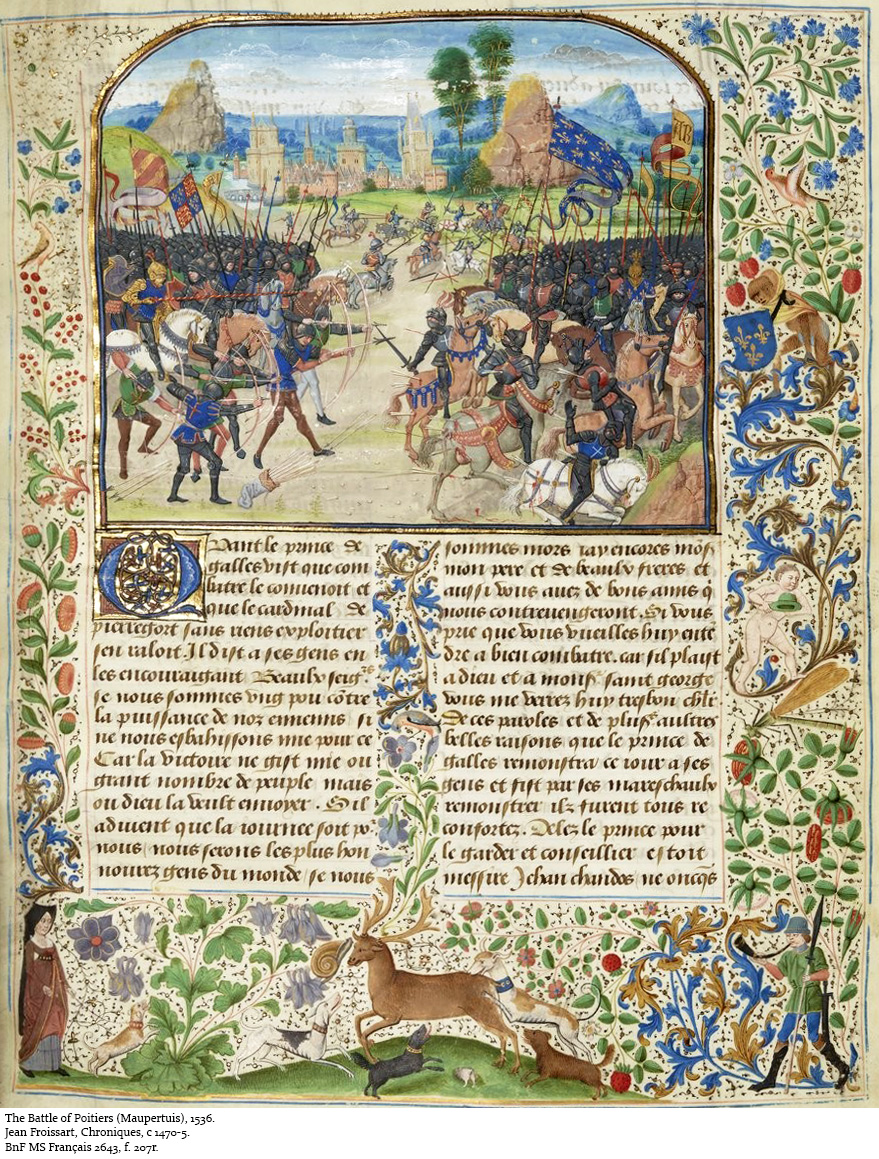 Quant le prince de
galles vist que com
batre le convenoit et
que le cardinal de
pierregort sans riens exploitier
sen raloit. Il dist a ses gens en
les encouraigant Beaulx seigrs
se nous sommes vng pou cōtre
la puissance de noz ennemis si
ne nous esbahissons mie pour ce
Car la victoire ne gist mie ou
grant nombre de peuple mais
ou dieu la veult envoyer. Sil
advient que la iournee soit po
nous nous serons les plus hon
nourez gens du monde se nous
sommes mors iay encores mōs
mon pere et de beaulx freres et
aussi vous avez de bons amis q̄
nous contrevengeront. Si vous
prie que vous vueilles huy ente
dre a bien combatre. car sil plaist
a dieu et a monsr saint george
vous me verrez huy tresbon chlr.
De ces paroles et de plusrs aultres
belles raisons que le prince de
galles remonstra ce iour a ses
gens et fist par ses mareschaulx
remonstrer ilz furent tous re
confortez. Delez le prince pour
le garder et conseillier estoit
messire Jehan chandos ne oncq̄s
The Battle of Poitiers (Maupertuis), 1536.
Jean Froissart, Chroniques, c 1470-5.
BnF MS Français 2643, f. 207r.